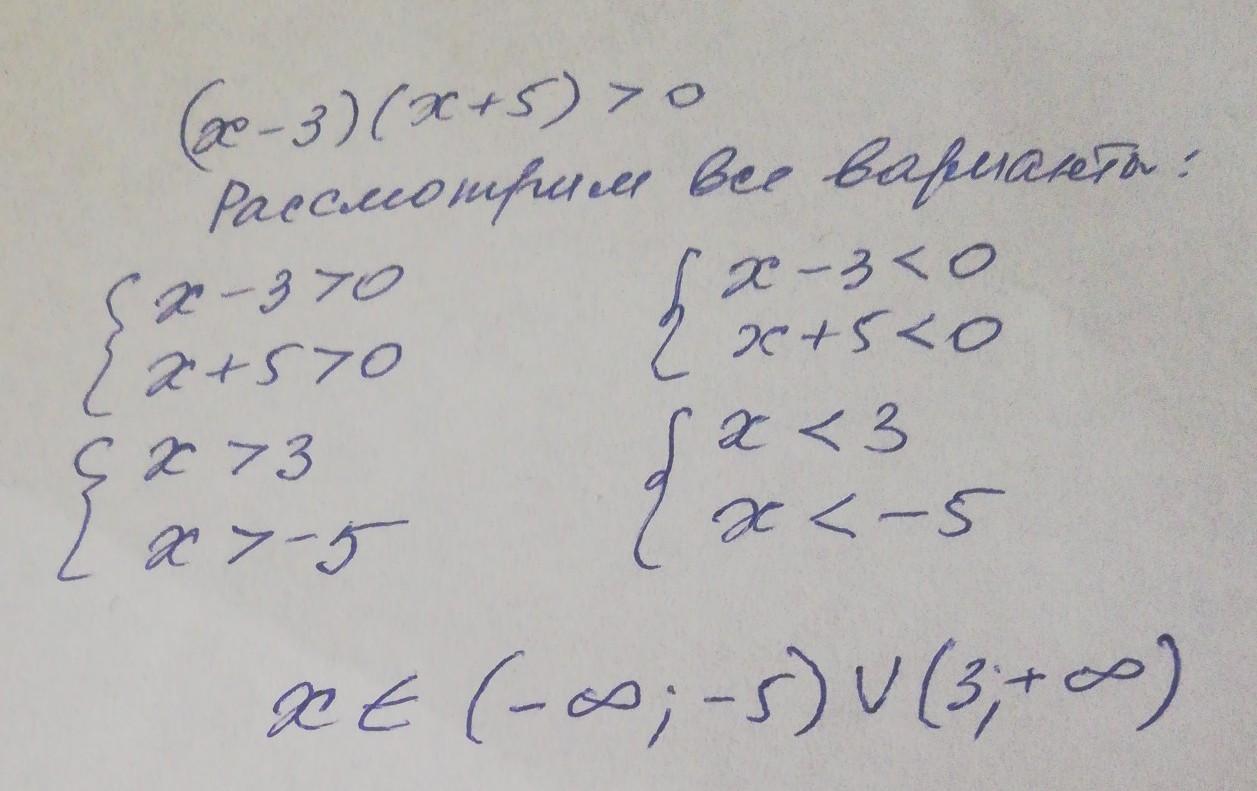 (x-3)(x+5)>0
Рассмотрим все варианты:
{ x-3>0
x+5>0
{ x>3
x>-5
{ x-3<0
x+5<0
{ x<3
x<-5
x∈(-∞;-5)∪(3;+∞)